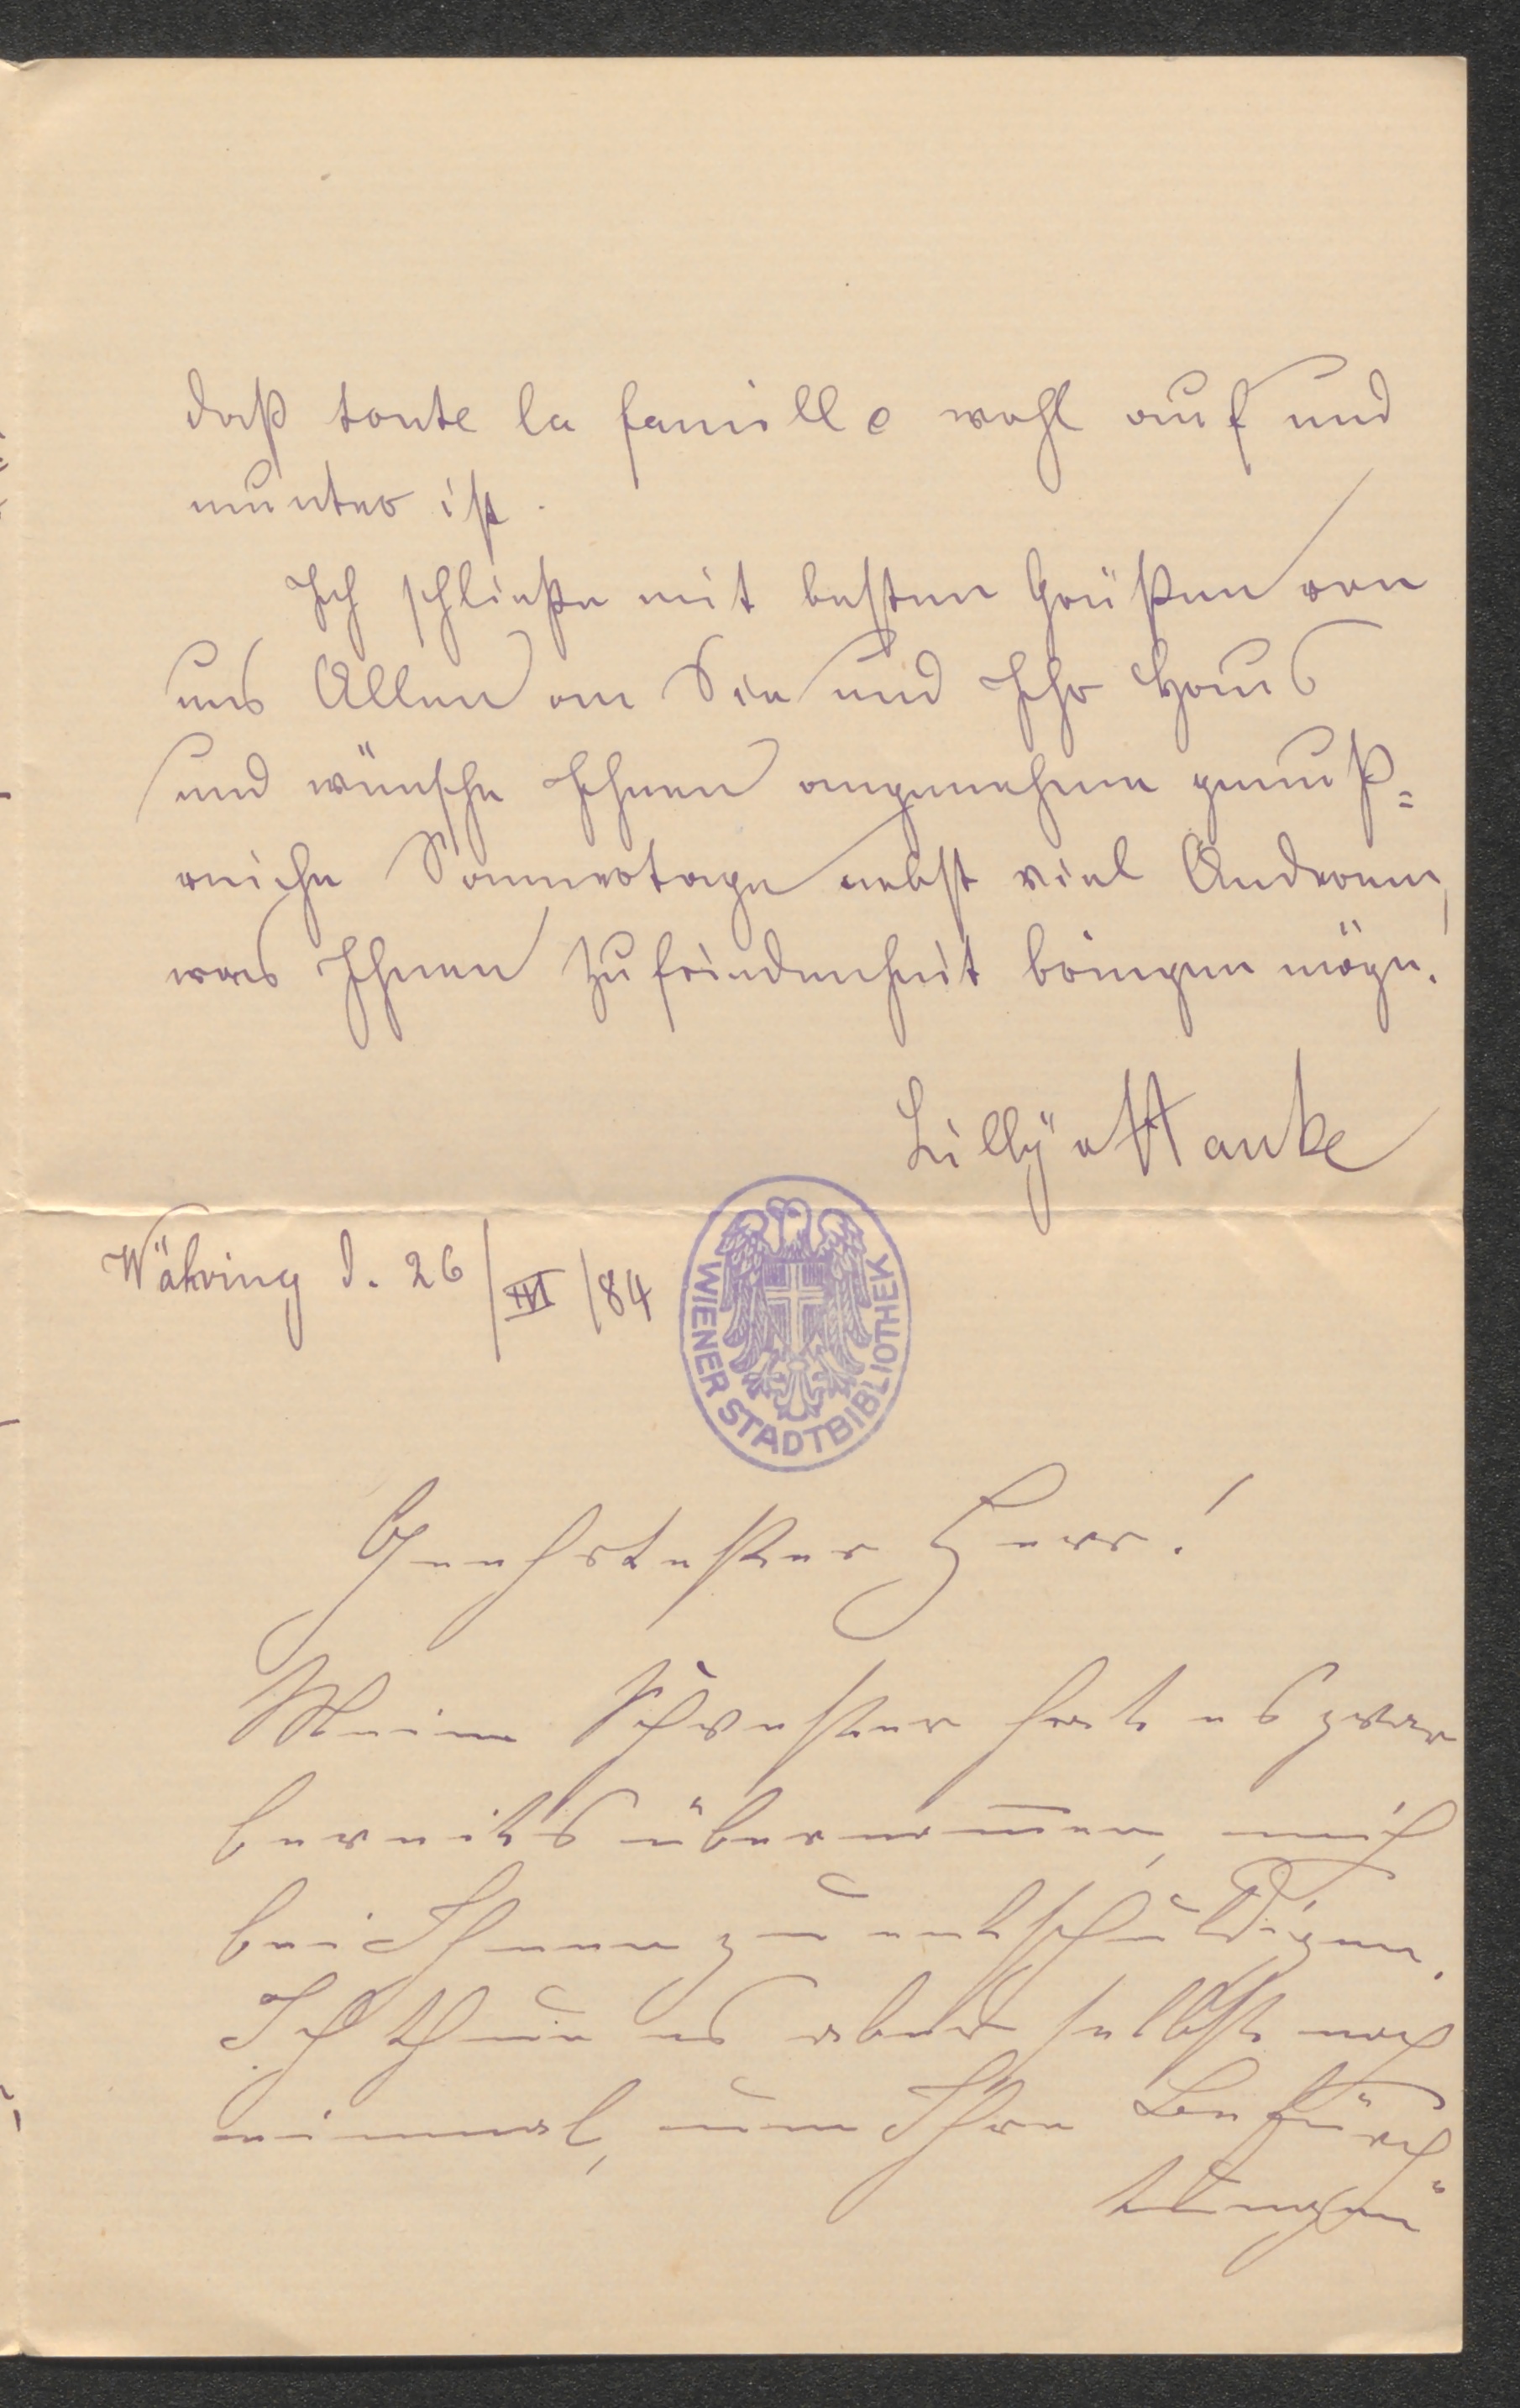 daß toute la famille wohl auf und
munter ist.
Ich schließe mit besten Grüßen von
uns Allen an Sie und Ihr Haus
und wünsche Ihnen angenehme genuß=
reiche Sommertage nebst viel Anderem,
was Ihnen Zufriedenheit bringen möge.
Lilly v Hanke
Währing d. 26/VII/84
WIENER STADTBIBLIOTHEK
Geehrtester Herr!
Meine Schwester hat es zwar
bereits übernom̅en, mich
bei Ihnen zu entschuldigen.
Ich thue es aber selbst noch
einmal, um Ihre Befürch
tungen